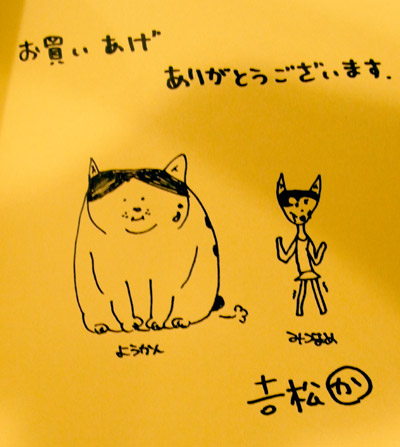 お買いあげ
ありがとうございます.
ようかん
みつまめ
吉松か